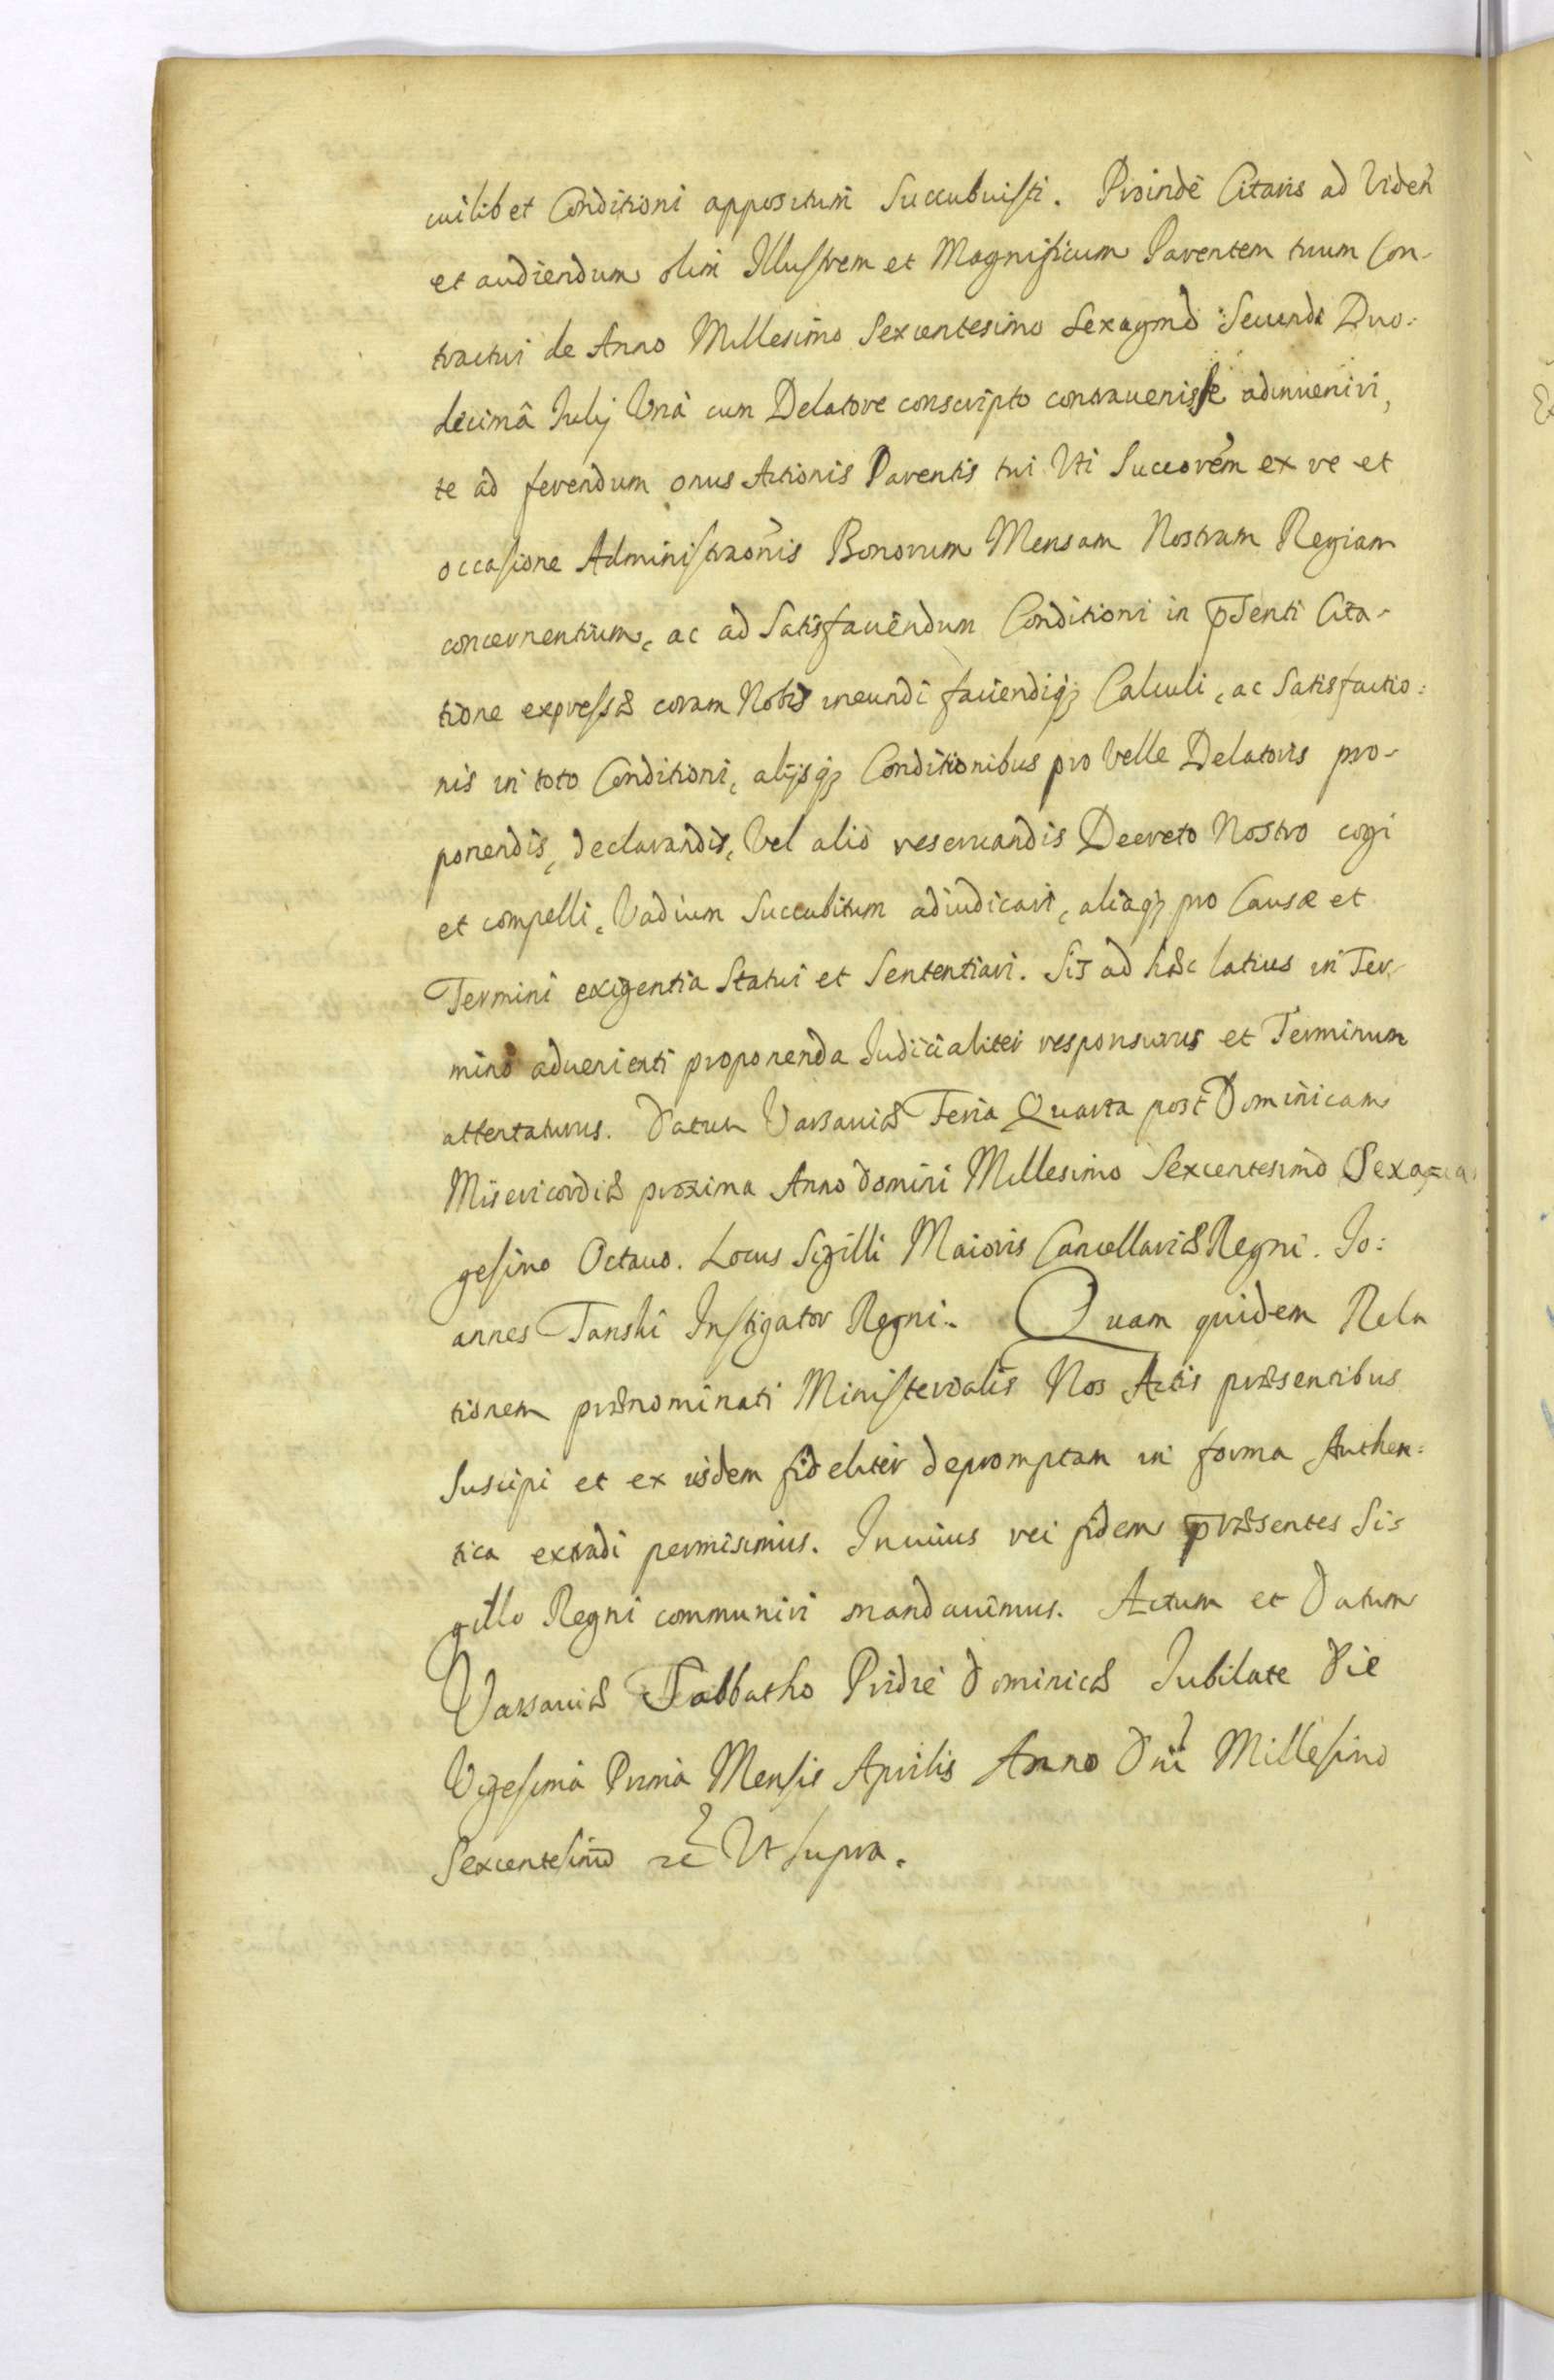 cuilibet Conditioni appositum Succubuisti. Proindè Citaris ad Videñ
et audiendum olim Illustrem et Magnificum Parentem tuum Con-
tractui de Anno Millesimo Sexcentesimo Sexagmo Secundo Duo:
decimâ Iulij Vnà cum Delatore conscripto contrauenisse adinueniri,
te ad ferendum onus Actionis Parentis tui Vti Succorẽm ex re et
occasione Administraõnis Bonorum Mensam Nostram Regiam
concernentium, ac ad Satisfaciẽndum Conditioni in p̃senti Cita-
tione expressæ coram Nobis ineundi faciendiq3 Calculi, ac Satisfactio:
nis in toto Conditioni, alijsq3 Conditionibus pro Velle Delatoris pro-
ponendis, declarandis, Vel aliò reseruandis Decreto Nostro cogi
et compelli, Vadium Succubitum adiudicari, aliaq3 pro Causæ et
Termini exigentia Statui et Sententiari. Sis ad hæc latius in Ter-
mino aduenienti proponenda Iudicialiter responsurus et Terminum
attentaturus. Datum Varsauiæ Feria Quarta post Dominicam
Misericordiæ proxima Anno Domini Millesimo Sexcentesimo Sexa
gesimo Octauo. Locus Sigilli Maioris Cancellariæ Regni. Jo:
annes Tanski Instigator Regni. Quam quidem Rela
tionem prænominati Ministerialis Nos Actis præsentibus
Suscipi et ex iisdem fideliter depromptam in forma Authen:
tica extradi permisimus. In cuius rei fidem præsentes Si-
gillo Regni communiri mandauimus. Actum et Datum
Varsauiæ Sabbatho Pridie Dominicæ Jubilate Die
Vigesimà Primà Mensis Aprilis Anno Dnĩ Millesimo
Sexcentesimo &c Vt supra.